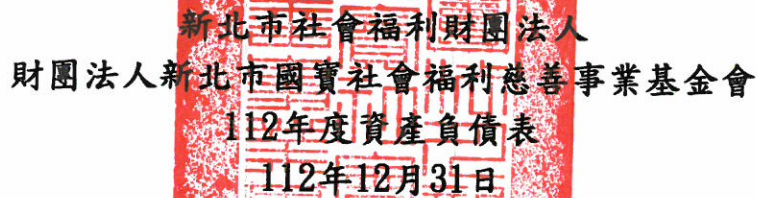 新北市社會福利財團法人
財團法人新北市國寶社會福利慈善事業基金會
112年度資產負債表
112年12月31日